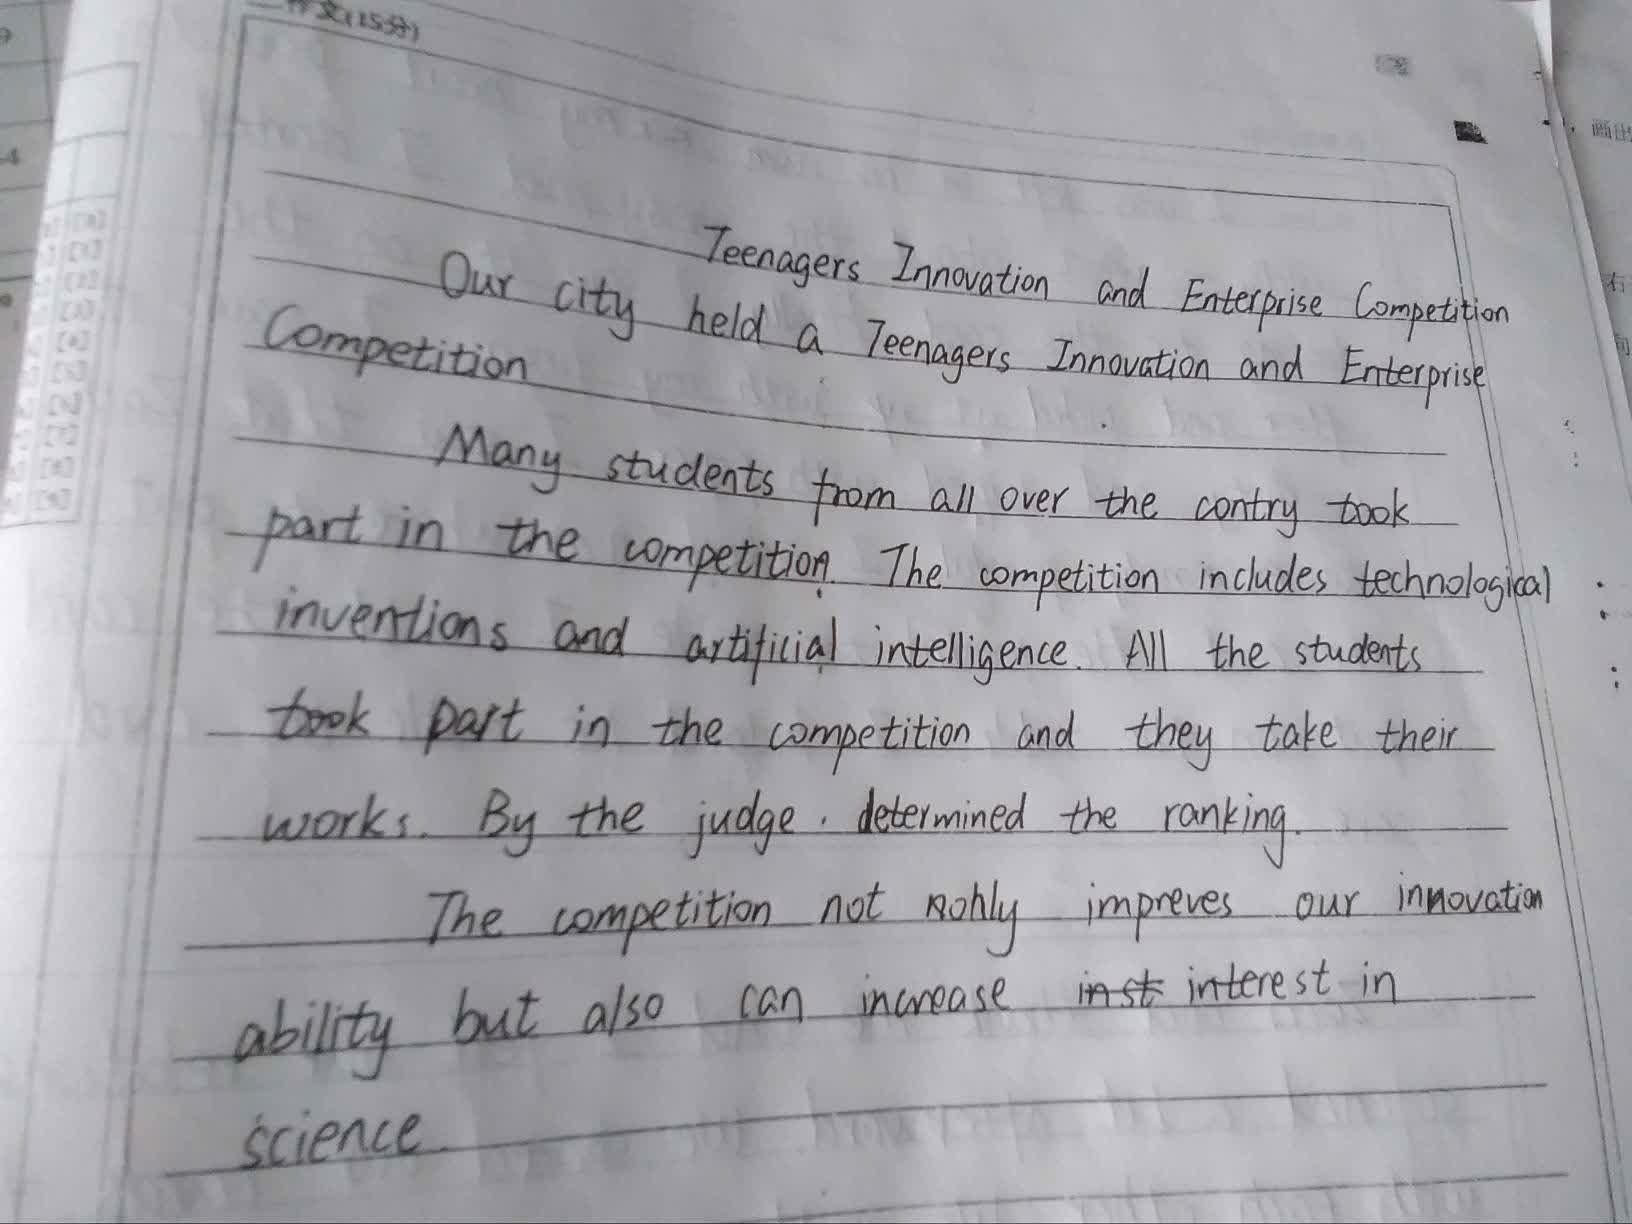 作文(15分)
Teenagers Innovation and Enterprise Competition
Our city held a Teenagers Innovation and Enterprise
Competition
Many students from all over the contry took
part in the competition. The competition includes technological
inventions and artificial intelligence. All the students
took part in the competition and they take their
works. By the judge. determined the ranking.
The competition not nohly impreves our innovation
ability but also can increase inst interest in
science